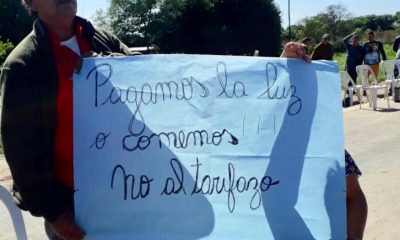 Pagamos la luz
o comemos!!!
No al tarifazo